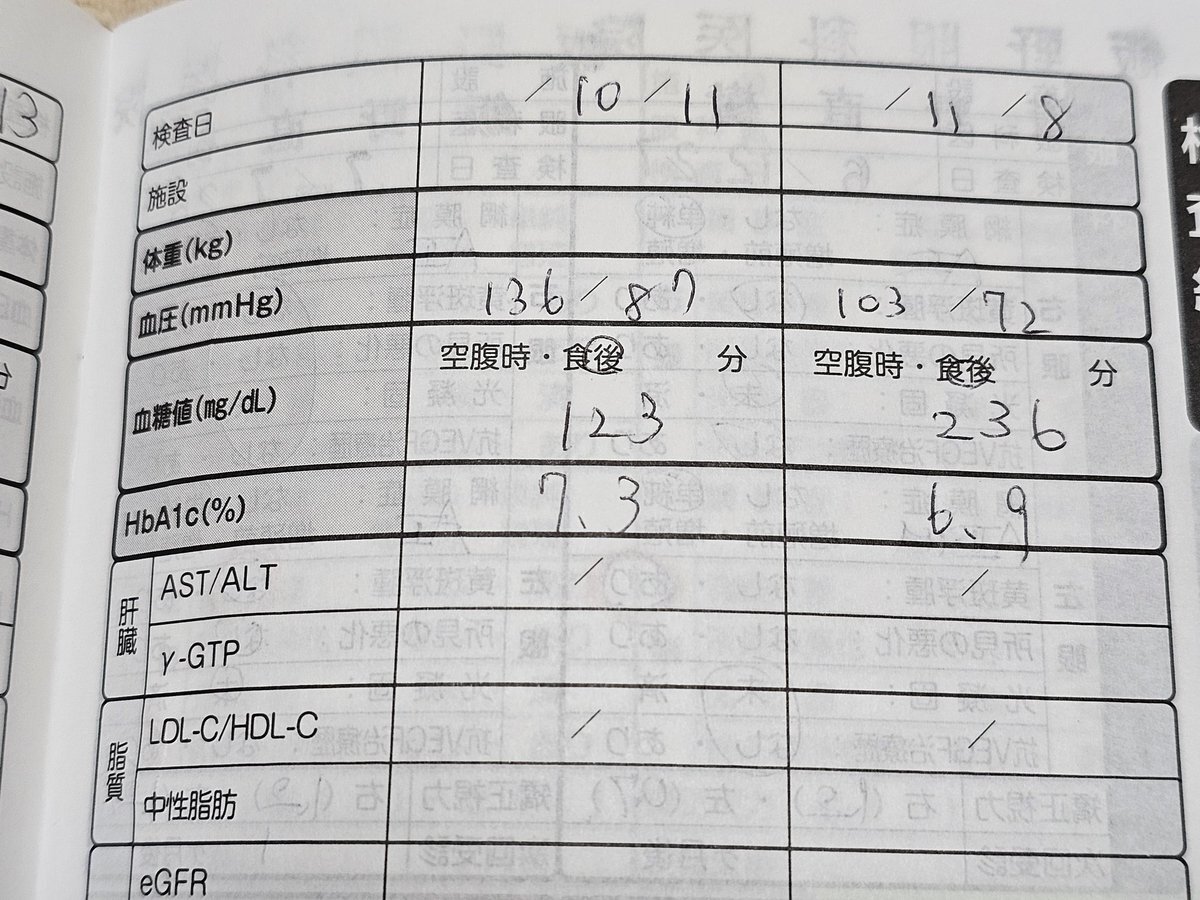 13
検査日 /10/11 /11/8
施設
体重(kg)
血圧(mmHg) 136/87 103/72
血糖値(mg/dL) 空腹時・食後 分 空腹時・食後 分
123 236
HbA1c(%) 7.3 6.9
肝臓 AST/ALT / /
γ-GTP
脂質 LDL-C/HDL-C / /
中性脂肪
eGFR